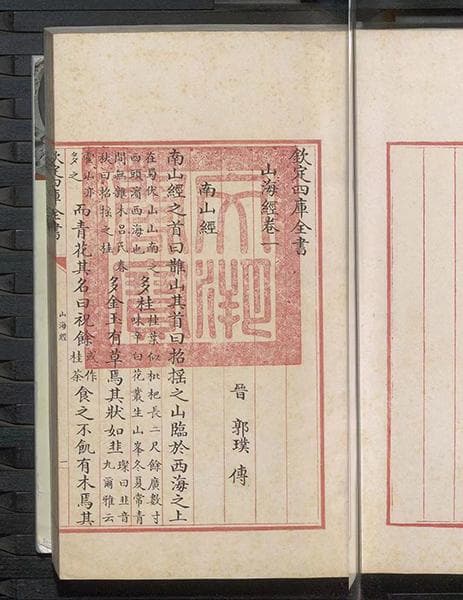 欽定四庫全書
山海經卷一
晉 郭璞 傳
南山經
南山經之首曰䧿山其首曰招搖之山臨於西海之上
在蜀伏山山南之西頭濱西海也多桂桂葉似枇杷長二尺餘廣數寸味辛白花叢生山峯冬夏常青
間無雜木呂氏春秋曰招搖之桂多金玉有草焉其狀如韭璨曰韭音九爾雅云
霍山亦多之而青花其名曰祝餘或作桂荼食之不飢有木焉其
欽定四庫全書
山海經
一